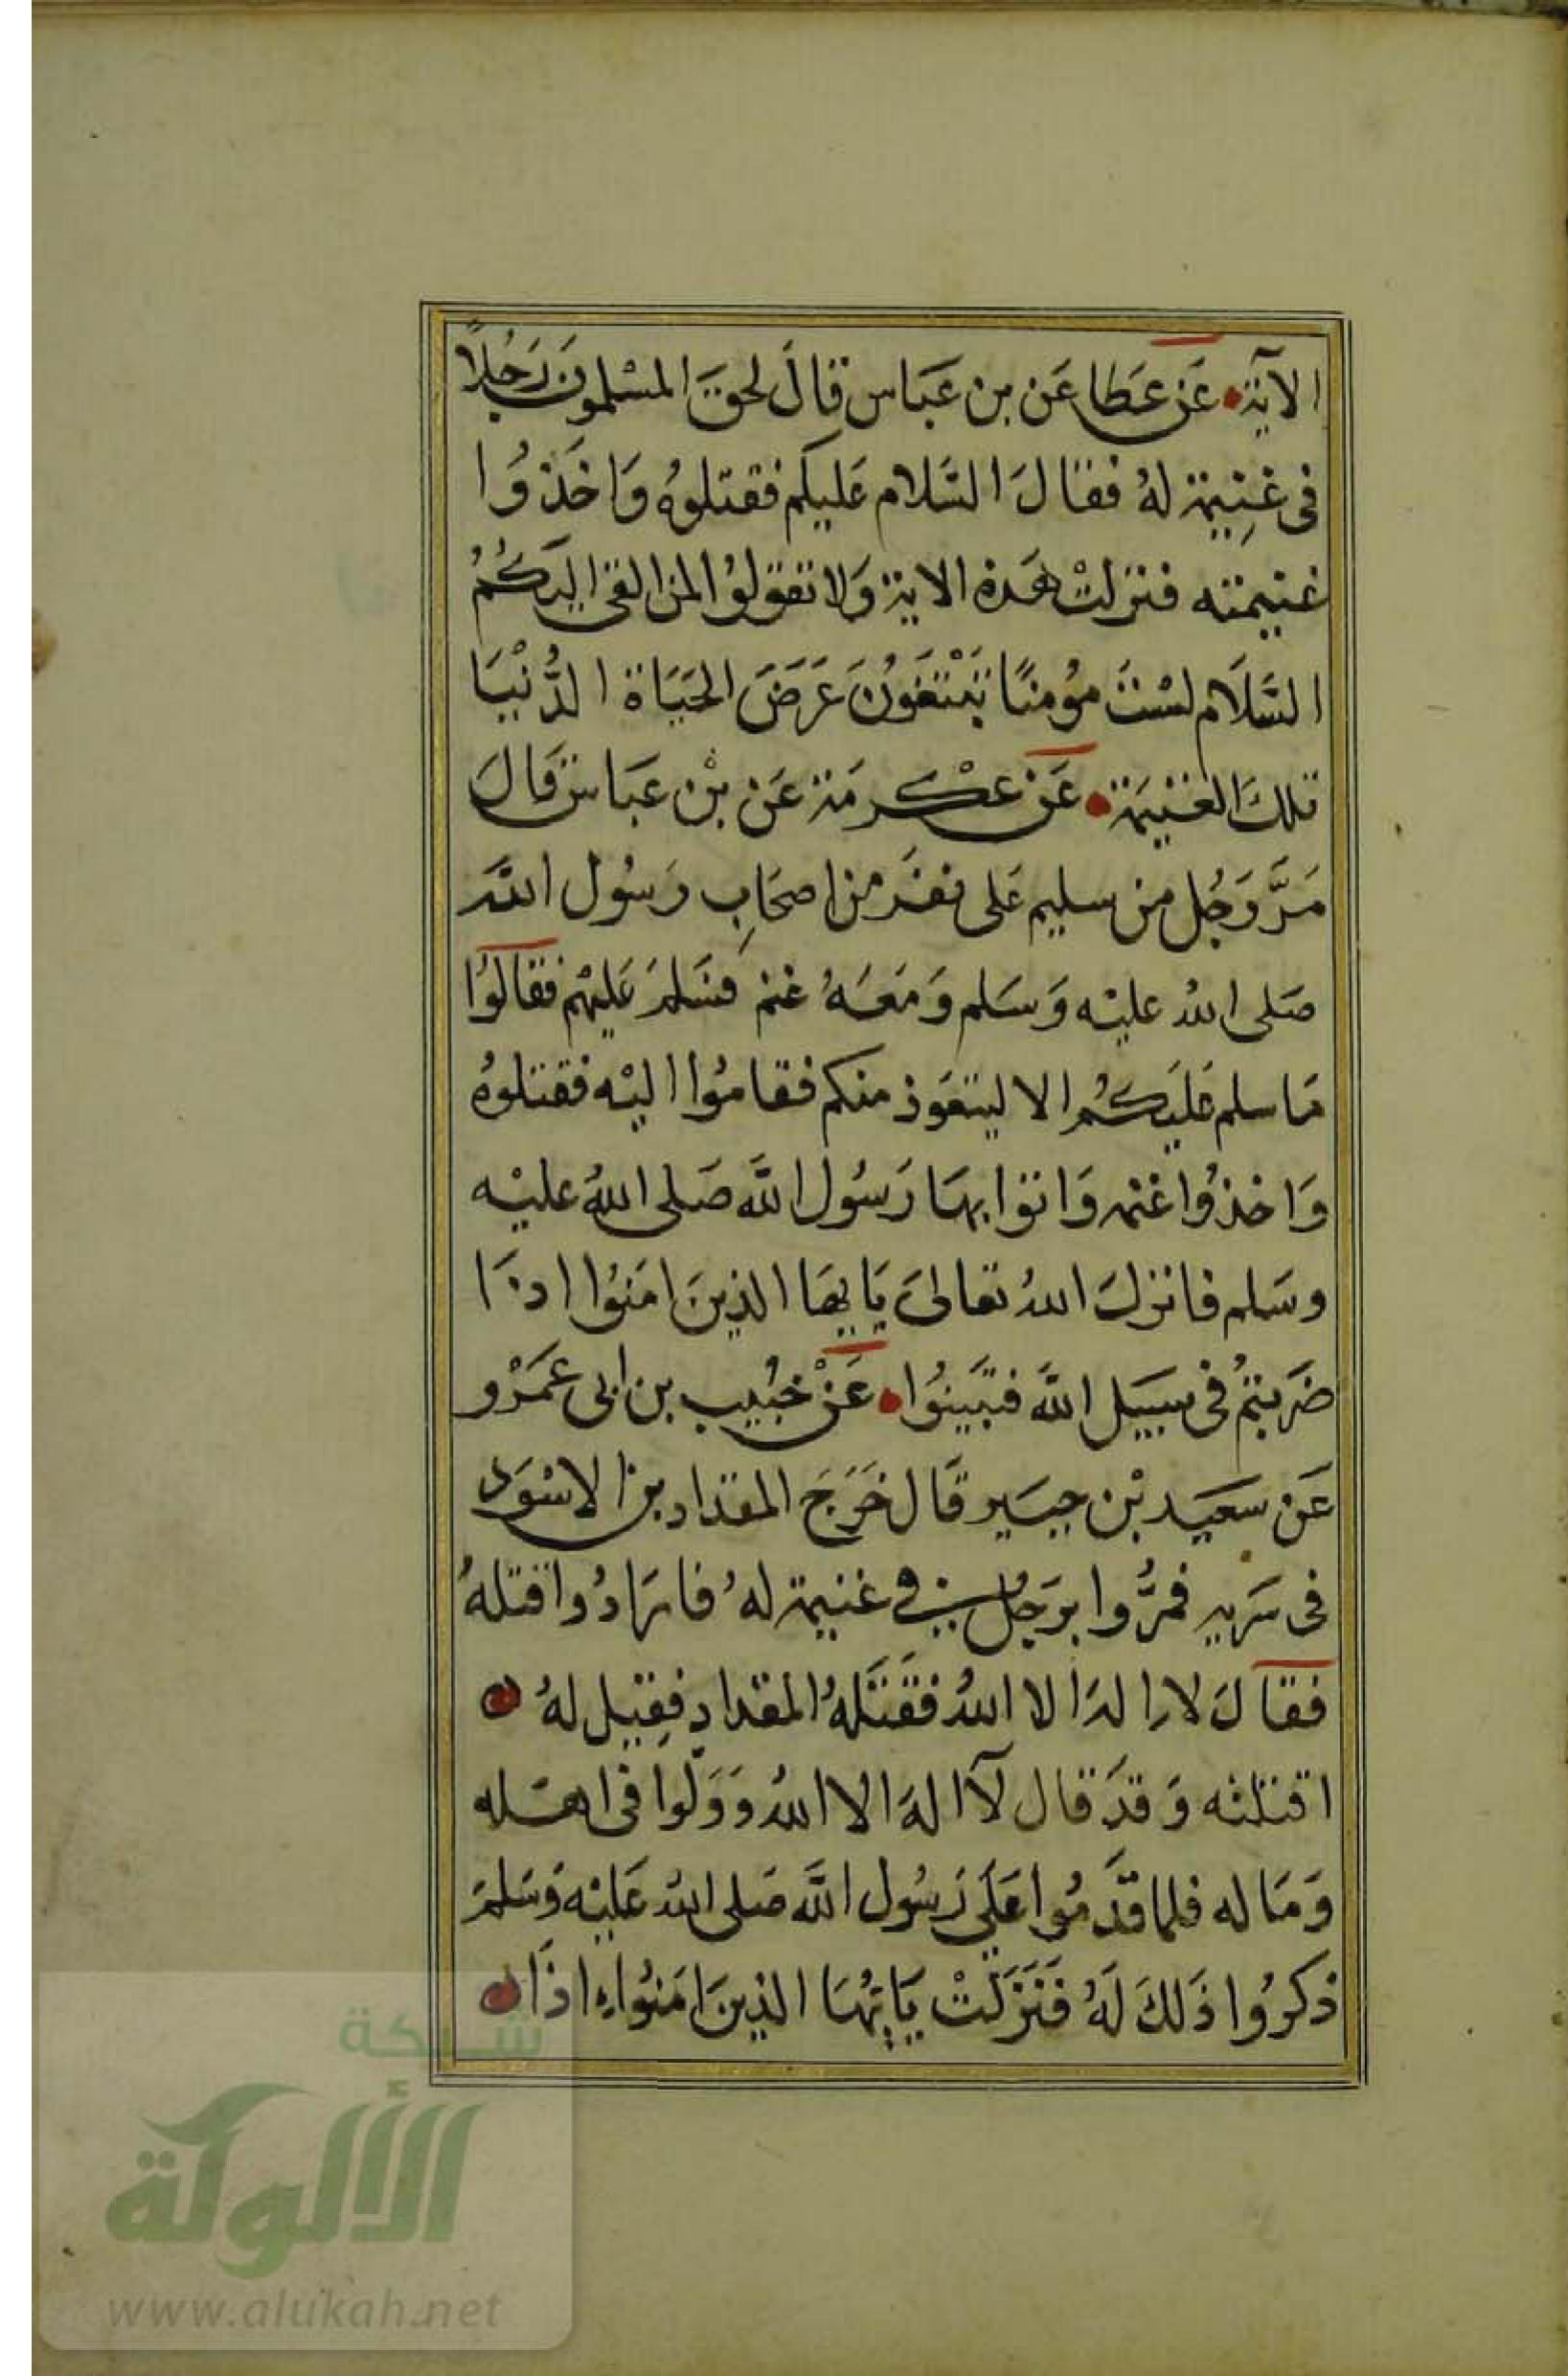 الآية عَن عَطا عَن بن عَبَاس قالَ لحقَ المسْلمونَ رَجُلاً
فى غنِيمة لهُ فقالَ السَّلام عَليكم فقتلوُه وَاخَذوُا
غنيمته فنزلتْ هَذه الاية وَلا تقولوُا لمن القى اليَكُمُ
السَّلَام لسْتَ مؤمنًا تَبْتَغَوُنَ عَرَضَ الحَيَاة الدُّنْيَا
تلكَ الغنيَمة عَن عكْرمَة عَن بْن عَبَاس قَالَ
مَرَّ رَجُل من سليم عَلى نفَر من اصحَابِ رَسُول اللَّه
صَلى اللهُ عليْه وَسَلم وَمَعَهُ غنم فسَلمَ عَليهْم فقالوُا
مَا سلم عَليَكُم الا ليتعَوذ منكم فقامُوا اليْه فقتلوُهُ
وَاخذوُا غنمه وَاتوا بهَا رَسُول اللَّه صَلى اللهُ عليْه
وسَلم فانزلَ اللهُ تعالىَ يَايهَا الذينَ امَنوُا اذَا
ضَربتمُ فى سبَيل اللَّه فتبَينوُا عَنْ خبُيب بن ابى عمَرْو
عَن سعَيد بْن جبَير قَال خَرَجَ المقدَاد بن الاسْوَد
فى سَريه فمرُّوا برَجُل فى غنيمة لهُ فارَادُوا قتلهُ
فقالَ لا اِلهَ الا اللهُ فقَتَلَهُ المقدادِ فقِيل لهُ
اقتلته وَقدَ قال لآ الهَ الا اللهُ وَوَلوا فى اهَله
وَمَا له فلما قدَّمُوا عَلَى رَسُول اللَّه صَلى اللهُ عَليْه وَسَلمَ
ذكروُا ذَلكَ لَهُ فَنَزَلَتْ يَايهُا الذينَ امَنوُا اذَا
شبكة
الألوكة
www.alukah.net